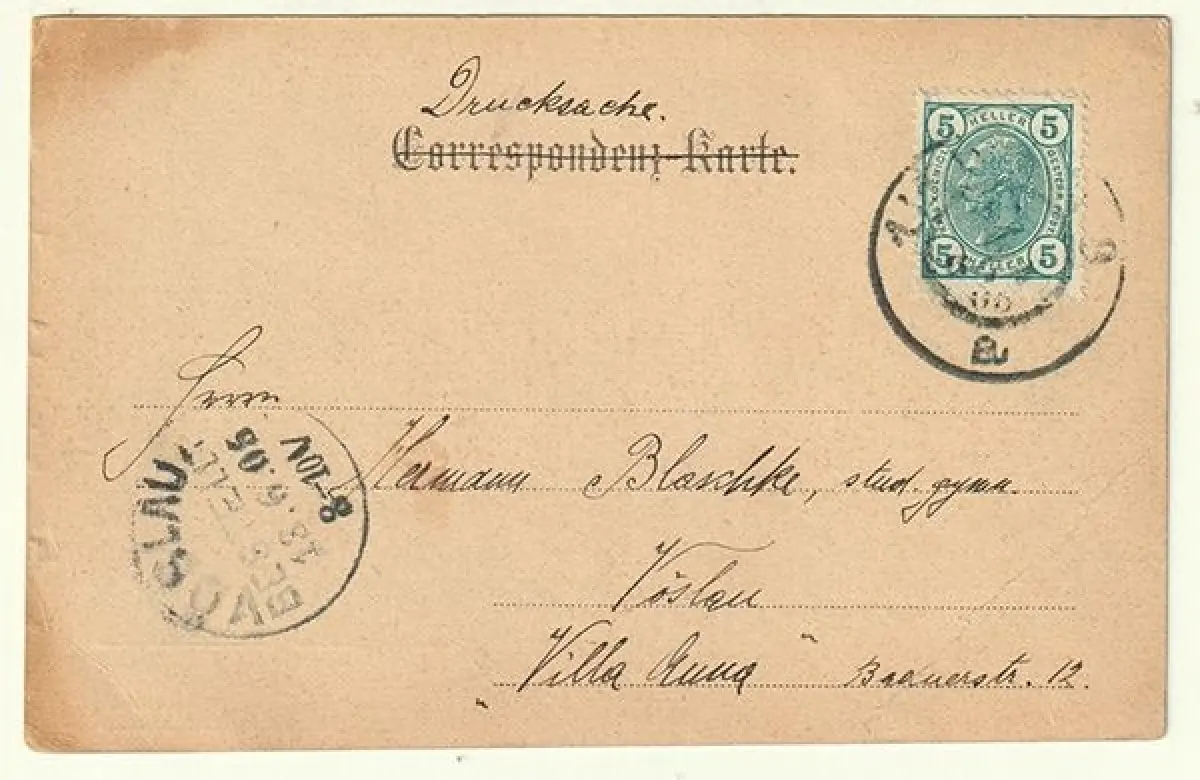 Drucksache.
Correspondenz-Karte.
5 HELLER 5
5 HELLER 5
06
a
Herrn
Hermann Blaschke, stud. gymn.
Vöslau
„Villa Anna“ Badnerstr. 12.
VÖSLAU
8–10V
18.6.05
BESTELLT